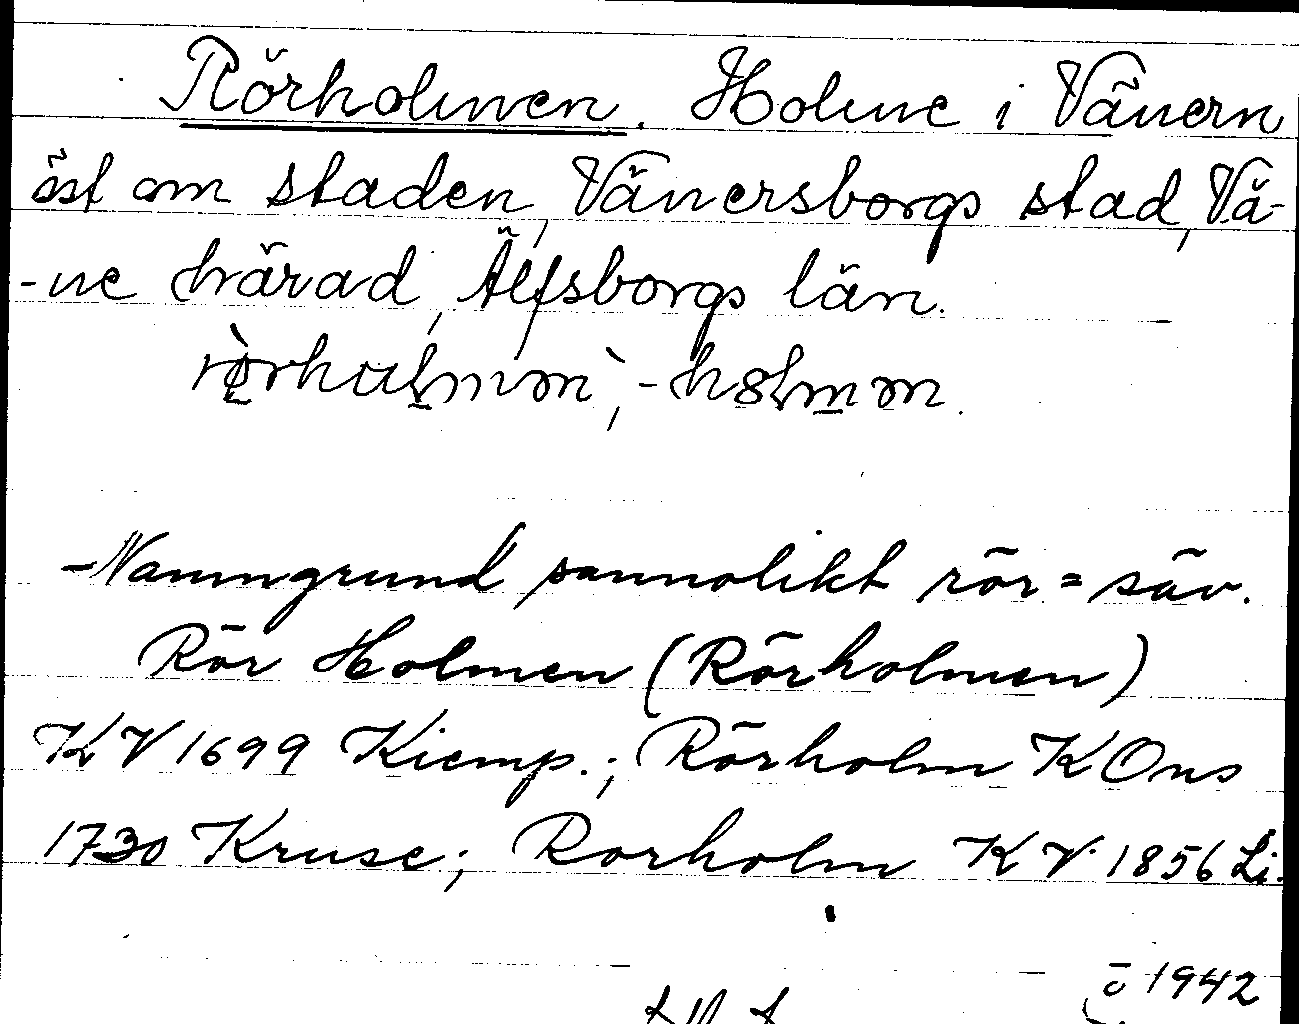 Rörholmen. Holme i Vänern
öst om staden, Vänersborgs stad, Vä-
-ne härad, Älfsborgs län.
-Namngrund sannolikt rör = säv.
Rör Holmen (Rörholmen)
KV 1699 Kiemp.; Rörholm KOns
1730 Kruse; Rorholm KV 1856 Li.
1942